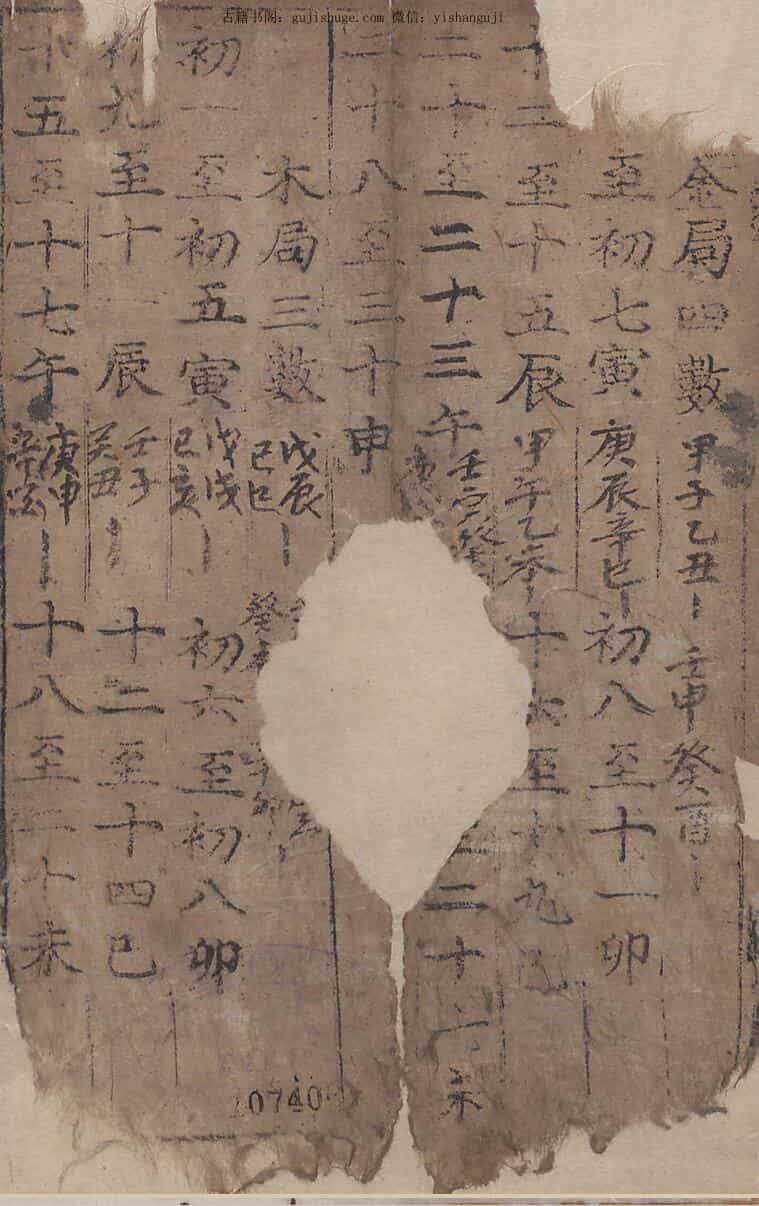 古籍书阁：gujishuge.com 微信：yishanguji
金局四數甲子乙丑壬申癸酉
至初七寅庚辰辛巳初八至十一卯
十二至十五辰甲午乙十六至十九巳
二十至二十三午壬寅癸二十六未
二十八至三十申
木局三數戊辰己巳癸
初一至初五寅戊戌己亥初六至初八卯
初九至十一辰壬子癸丑十二至十四巳
十五至十七午庚申十八至二十未
0740